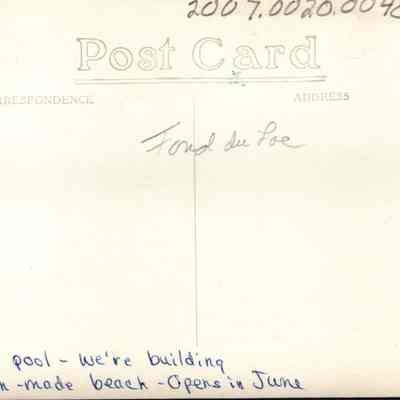 2007.0020.004
Post Card
RRESPONDENCE
ADDRESS
Fond du Loc
pool - we're building
n-made beach - Opens in June